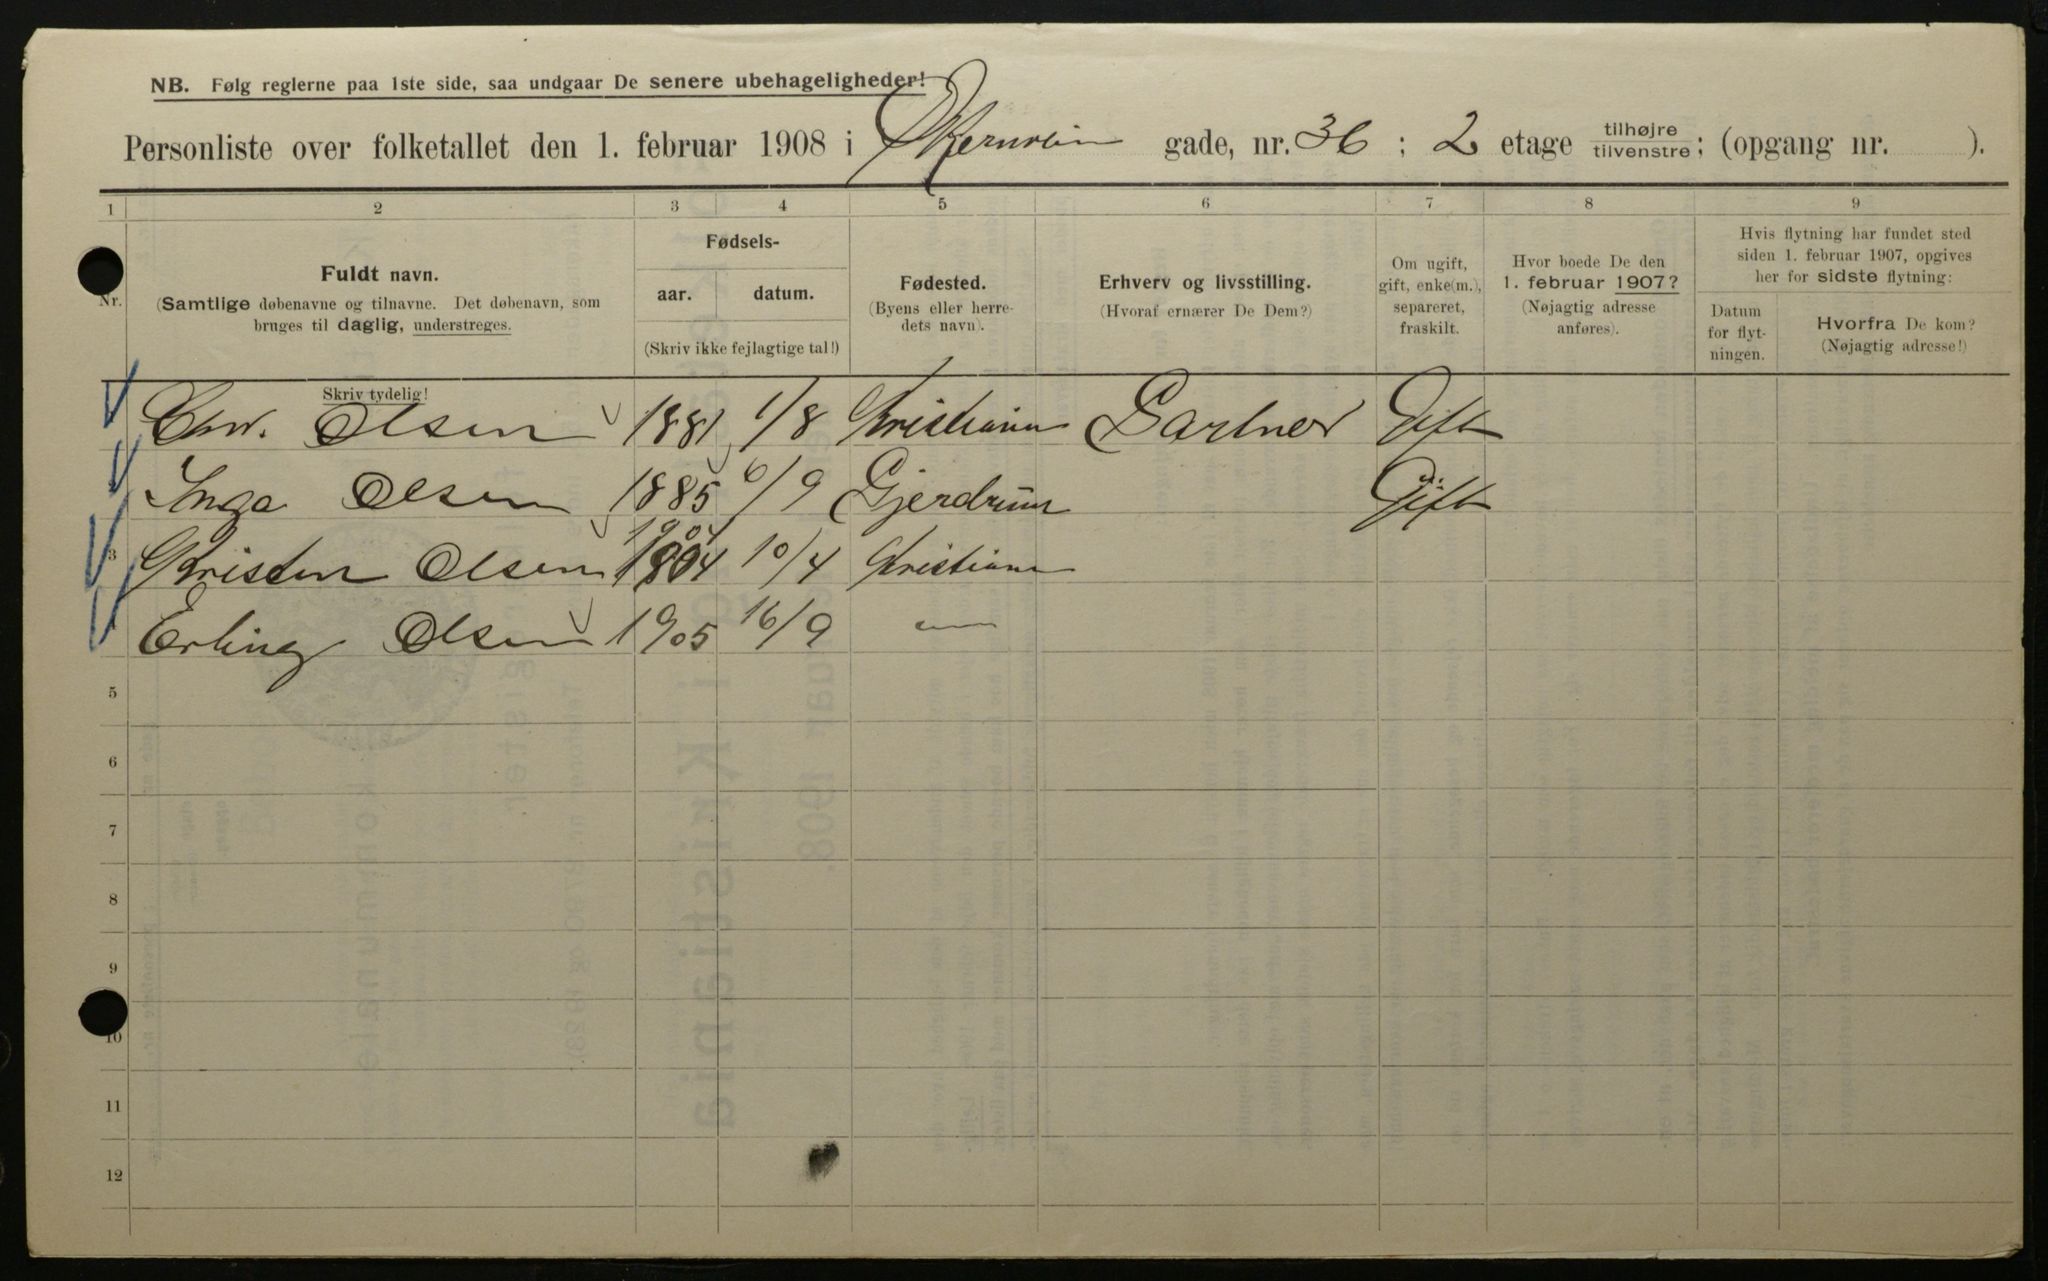 NB. Følg reglerne paa 1ste side, saa undgaar De senere ubehageligheder!
Personliste over folketallet den 1. februar 1908 i Økernvein gade, nr. 36; 2 etage tilhøjre tilvenstre; (opgang nr. ).
1 2 3 4 5 6 7 8 9
Nr.
Fuldt navn.
(Samtlige døbenavne og tilnavne. Det døbenavn, som
bruges til daglig, understreges.
Skriv tydelig!
Fødsels-
aar. datum.
(Skriv ikke fejlagtige tal!)
Fødested.
(Byens eller herre-
dets navn).
Erhverv og livsstilling.
(Hvoraf ernærer De Dem?)
Om ugift,
gift, enke(m.),
separeret,
fraskilt.
Hvor boede De den
1. februar 1907?
(Nøjagtig adresse
anføres).
Hvis flytning har fundet sted
siden 1. februar 1907, opgives
her for sidste flytning:
Datum
for flyt-
ningen.
Hvorfra De kom?
(Nøjagtig adresse!)
Chr. Olsen 1881 1/8 Kristiania Gartner Gift
Inga Olsen 1885 6/9 Gjerdrum Gift
1904
3 Kristen Olsen 1904 10/4 Kristiania
4 Erling Olsen 1905 16/9 —"—
5
6
7
8
9
10
11
12